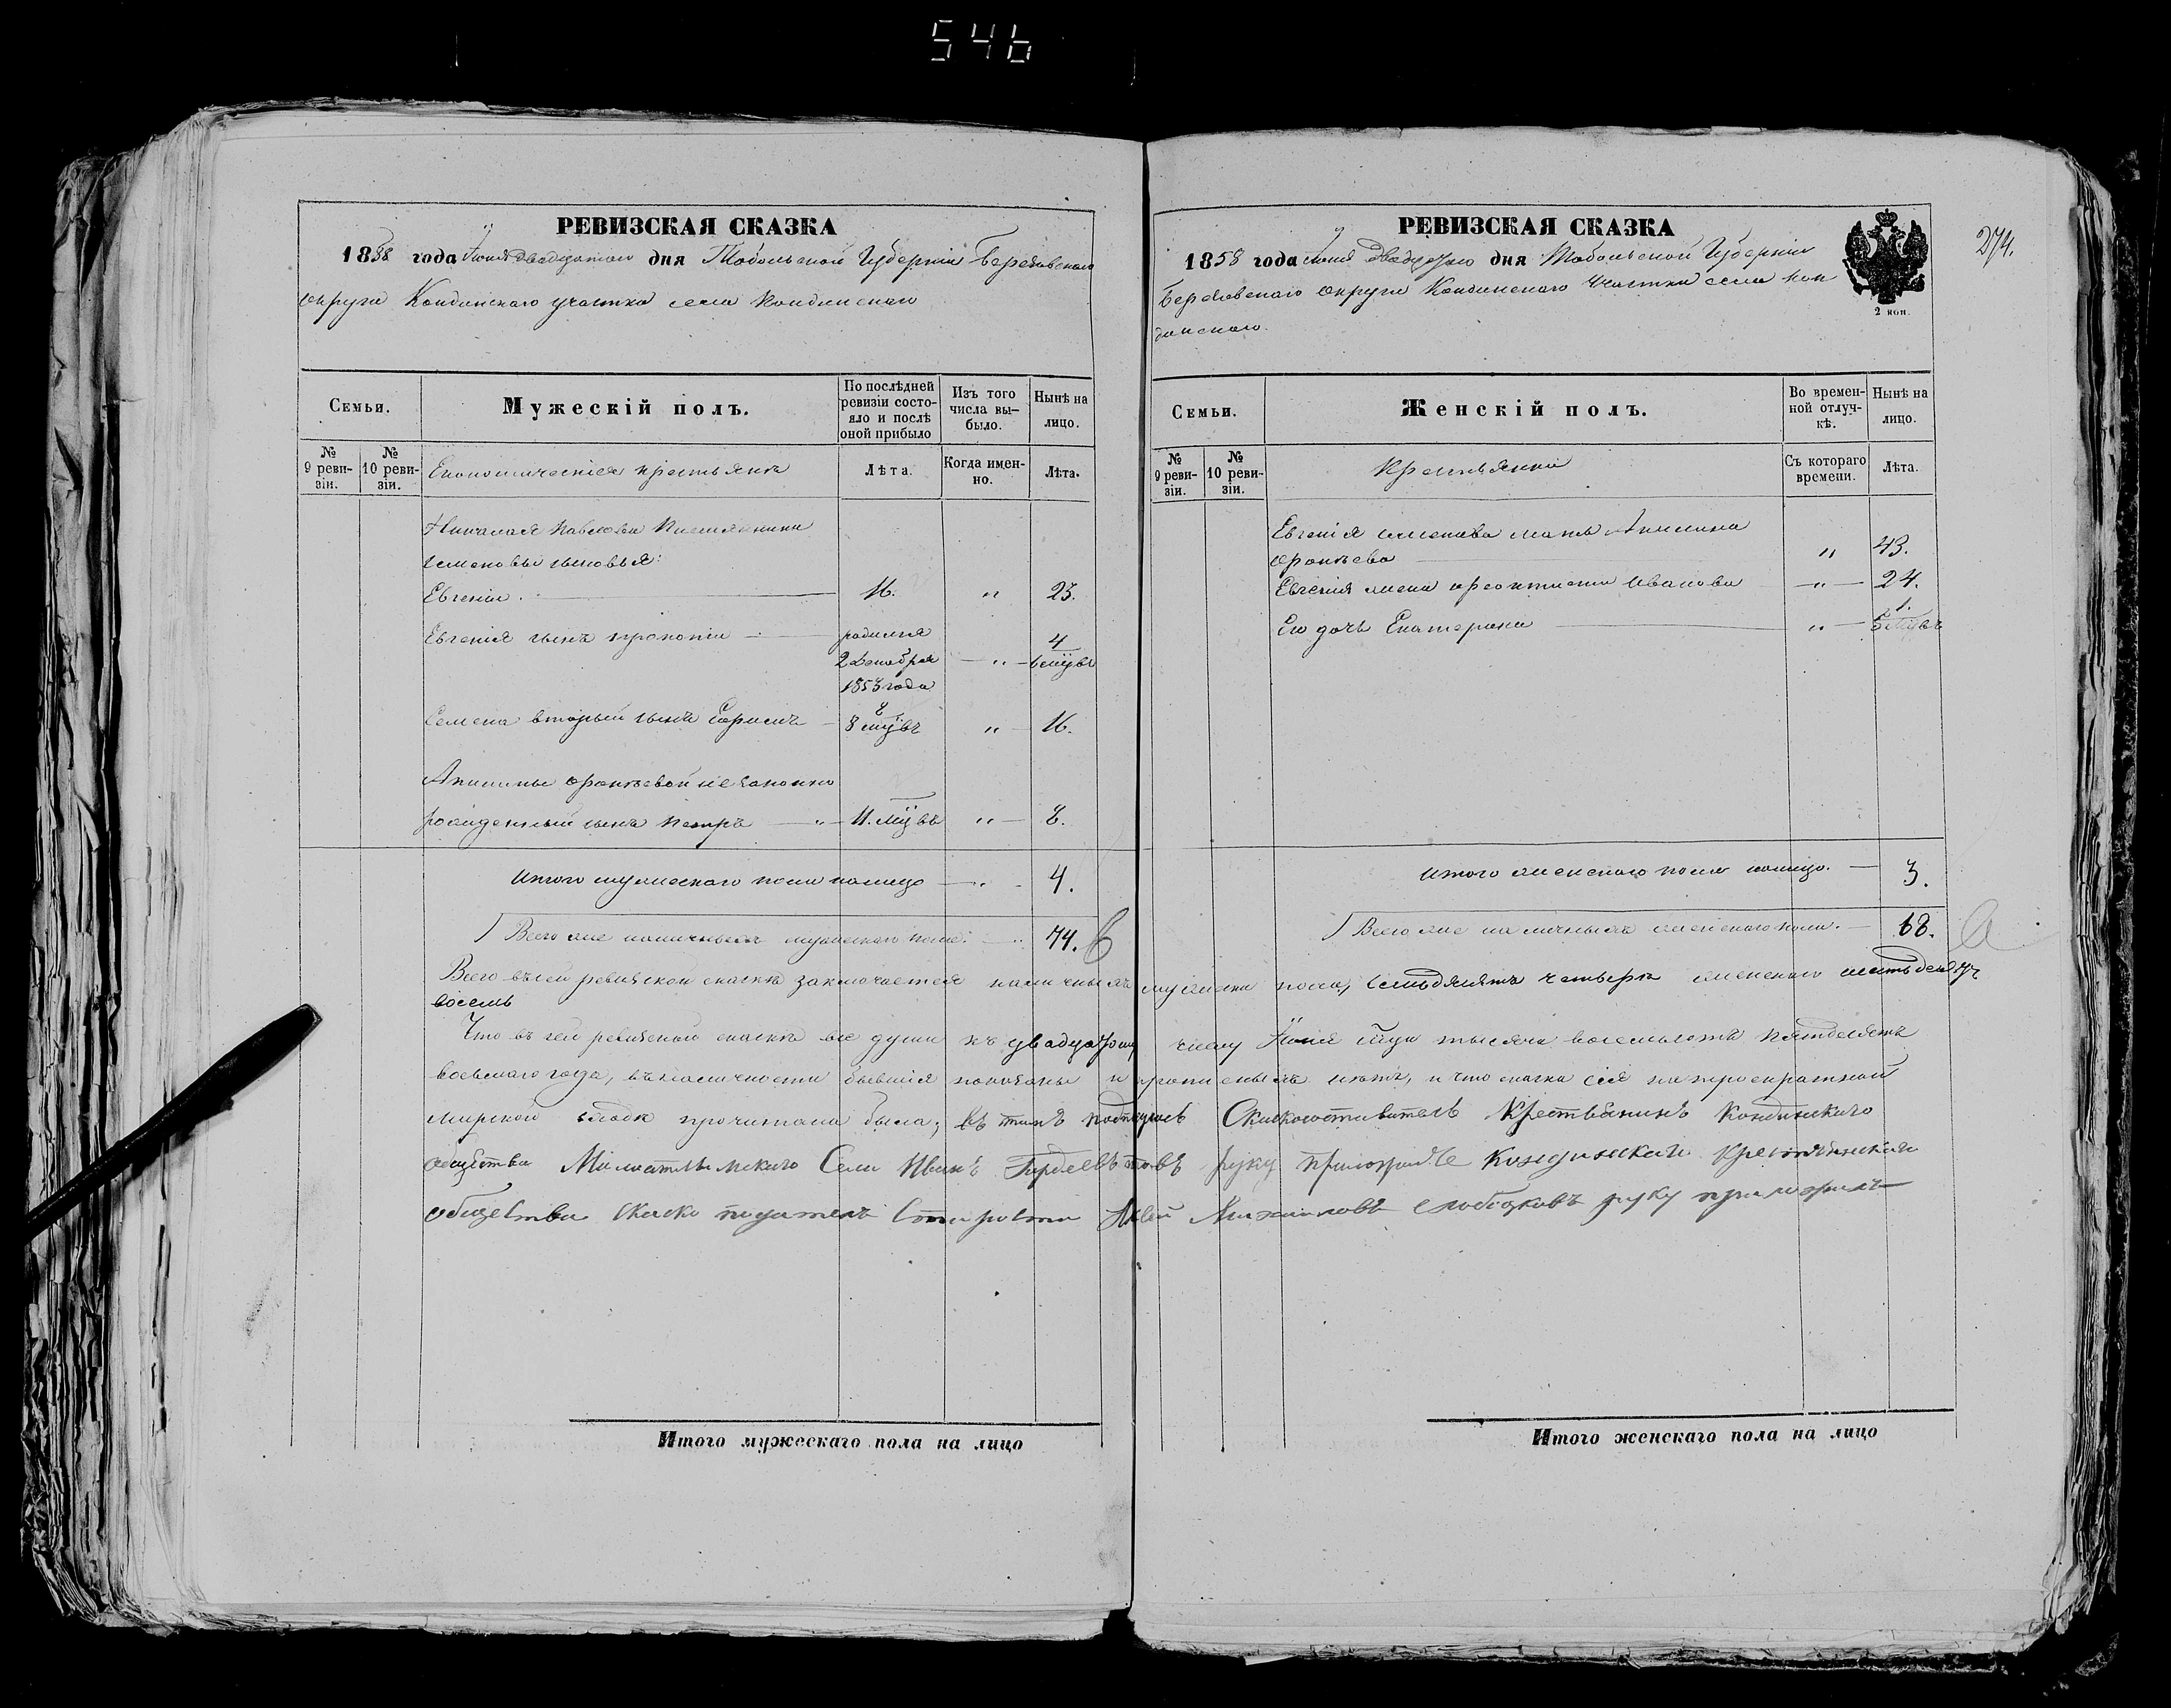 546
РЕВИЗСКАЯ СКАЗКА
1858 года Іюня двадцатаго дня Тобольской Губерніи Березовскаго
округа Кондинскаго участка села Кондинскаго
Семьи.
Мужескій полъ.
По послѣдней ревизіи состояло и послѣ оной прибыло
Изъ того числа выбыло.
Нынѣ на лицо.
№ 9 ревизіи.
№ 10 ревизіи.
Экономическіе крестьяне
Лѣта.
Когда именно.
Лѣта.
Николая Павлова
Семеновы сыновья:
Евгеній. 16. " 23.
Евгенія сынъ Прокопій родился 4
2 Декабря " 6 мцвъ
1853 года
Семена вторый сынъ Ефимъ 8
8 мцвъ " 16.
Акилины незаконно
рожденный сынъ Петръ " 11. мцвъ " 8.
Итого мужескаго пола налицо " 4.
Всего же наличныхъ мужескаго пола: " 74.
Итого мужескаго пола на лицо
РЕВИЗСКАЯ СКАЗКА
274.
1858 года Іюня двадцатаго дня Тобольской Губерніи
Березовскаго округа Кондинскаго участка села Кон
динскаго.
2 коп.
Семьи.
Женскій полъ.
Во временной отлучкѣ.
Нынѣ на лицо.
№ 9 ревизіи.
№ 10 ревизіи.
Крестьянки
Съ котораго времени.
Лѣта.
Евгенія Семенова мать Акилина
" 43.
Евгенія жена Феоктиста Иванова " 24.
Его дочь Екатерина " 1.
5 мцвъ
Итого женскаго пола налицо. 3.
Всего же наличныхъ женскаго пола. 68.
Всего въ сей ревизской сказкѣ заключается наличныхъ мужска пола, семьдесятъ четыре женскаго шестьдесятъ
восемь
Что въ сей ревизской сказкѣ все души къ двадцатому числу Іюня тысяча восемьсотъ пятьдесятъ
восьмаго года, въ наличности бывшія показаны и прописныхъ нѣтъ, и что сказка сія на троекратной
мирской сходкѣ прочитана была; въ томъ подпишусь Сказкосоставитель Крестьянинъ Кондинскаго
общества Малоатлымскаго Села Иванъ руку приложилъ Кондинскаго Крестьянскаго
общества сказко податель Староста Михайловъ Слободсковъ руку приложилъ
Итого женскаго пола на лицо